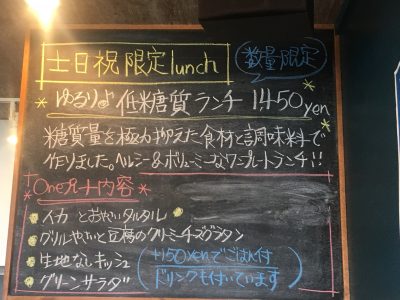 土日祝限定lunch
数量限定
ゆるりぃ低糖質ランチ 1450yen
糖質量を極力抑えた食材と調味料で
作りました。ヘルシー&ボリューミーなワンプレートランチ!!
Oneプレート内容
イカ とおやさいタルタル
グリルやさいと豆腐のクリーミーチーズグラタン
生地なしキッシュ
グリーンサラダ
+150yenでごはん付
ドリンクも付いています